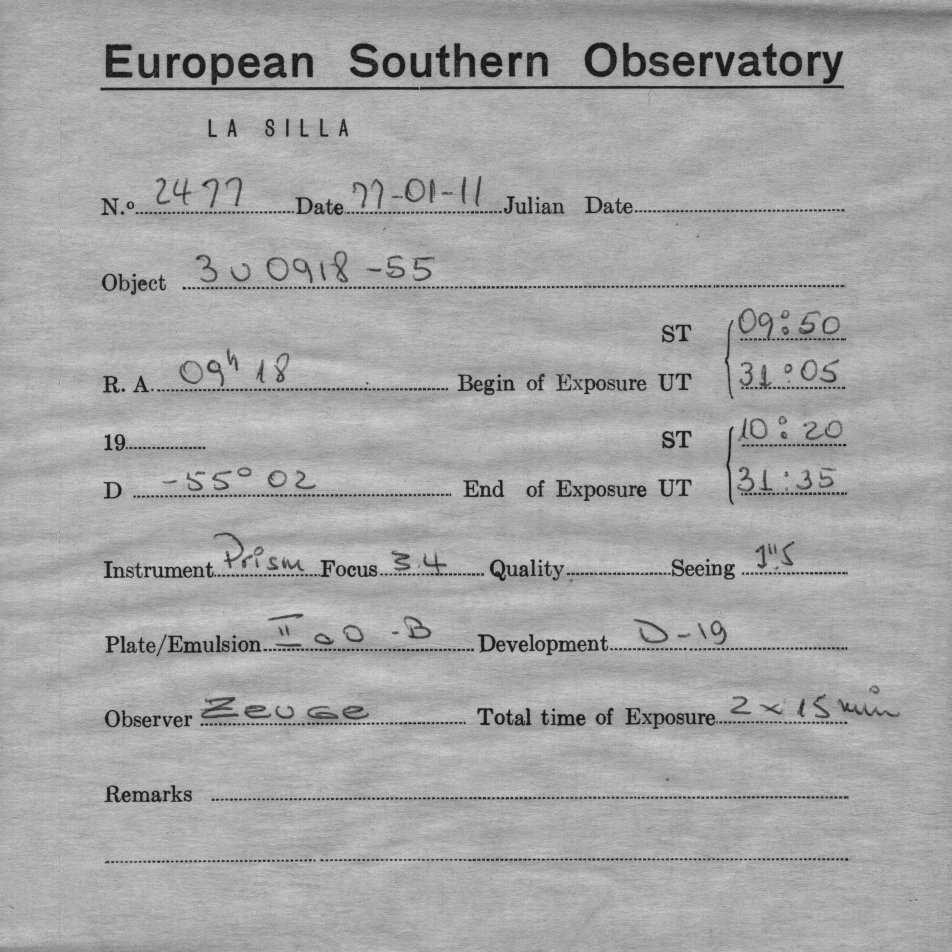 European Southern Observatory
LA SILLA
N.º 2477 Date 77-01-11 Julian Date
Object 3U 0918-55
ST 09:50
R. A. 09h 18 Begin of Exposure UT 31:05
19 ST 10:20
D -55° 02 End of Exposure UT 31:35
Instrument Prism Focus 3.4 Quality Seeing 1".5
Plate/Emulsion IIaO-B Development D-19
Observer Zeuge Total time of Exposure 2 x 15 min
Remarks